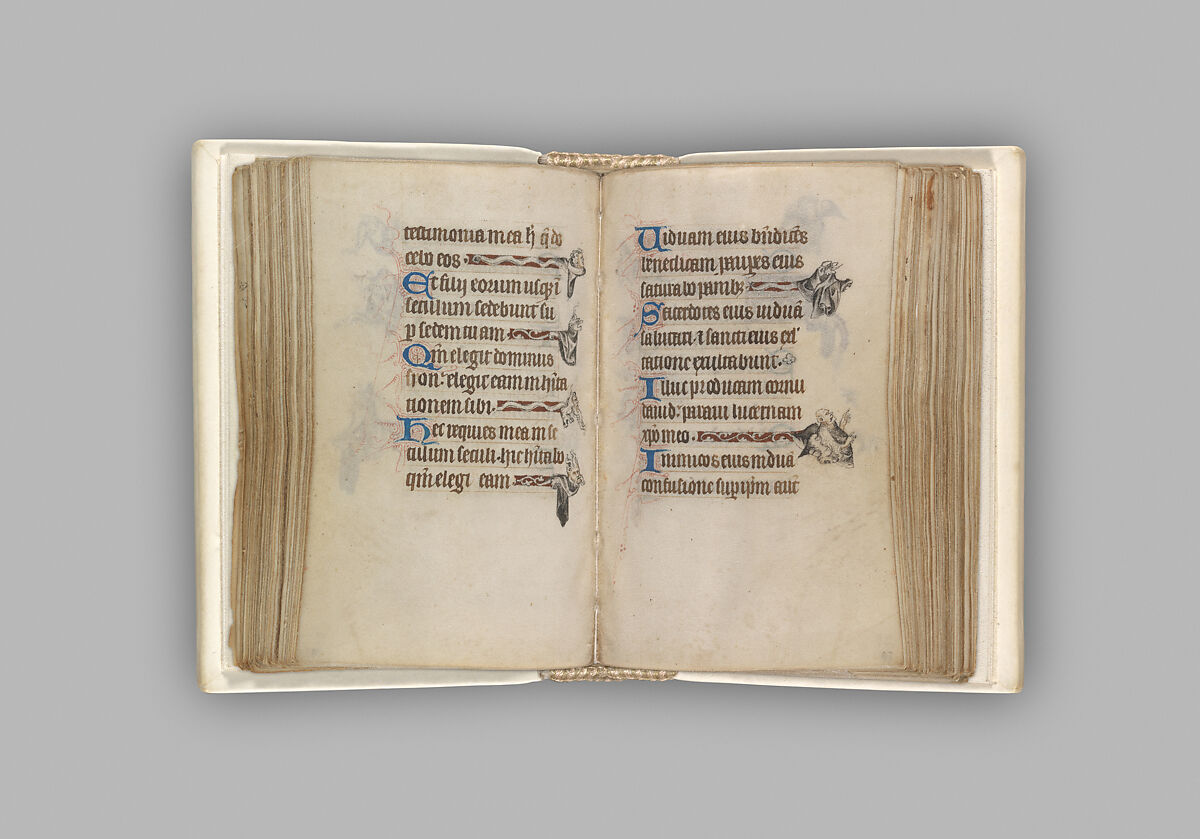 testimonia mea hͨ q̄ do
cebo eos.
Et filij eorum usqꝫ ī
seculum sedebunt su
ꝑ sedem tuam
Qm̄ elegit dominus
syon: elegit eam in hīta
tionem sibi.
Hec requies mea in se
culum seculi. hic hītabo
qm̄ elegi eam
Uiduam eius bn̄dicēs
benedicam pauꝑes eius
saturabo panibꝫ
Sacerdotes eius induā
salutari. ⁊ sancti eius exl'
tatione exultabunt.
Illuc producam cornu
dauid: paraui lucernam
xp̄o meo.
Inimicos eius induā
confusione suꝑ ip̄m aūt